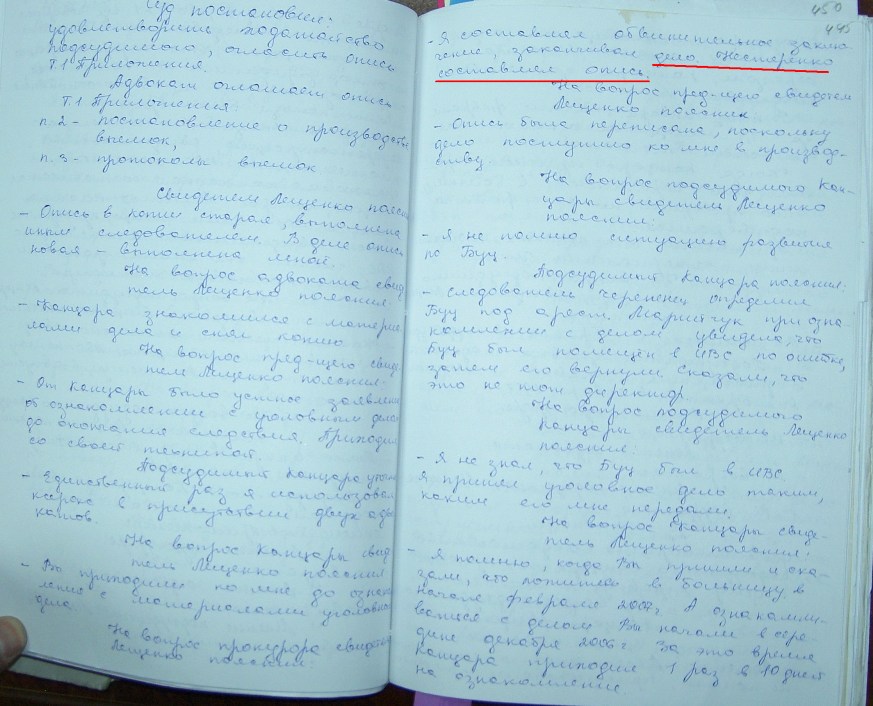 Суд постановил:
удовлетворить ходатайство
подсудимого, огласить опись
Т.1 Приложения.
Адвокат оглашает опись
Т.1 Приложения
п. 2 - постановление о производстве
выемок,
п. 3 - протоколы выемок
Свидетель Лещенко поясн
- Опись в копии старая, выполнена
иным следователем. В деле опись
новая - выполнена мной.
На вопрос адвоката свид
тель Лещенко пояснил
- Канцара знакомился с матери
лами дела и снял копию
На вопрос пред-щего свиде
тель Лещенко пояснил:
- От Канцары было устное заявлен
об ознакомлении с уголовным дело
до окончания следствия. Приходил
со своей техникой.
Подсудимый Канцара
- Единственный раз я использовал
ксерокс в присутствии двух адв
катов.
На вопрос Канцары свид
тель Лещенко пояснил
- Вы приходили ко мне до ознак
ления с материалами уголовно
дела
На вопрос прокурора свидетель
Лещенко пояснил:
450
445
- Я составлял обвинительное заклю-
чение, заканчивал дело. Нестеренко
составлял опись.
На вопрос пред-щего свидетель
Лещенко пояснил
- Опись была переписана, поскольку
дело поступило ко мне в производ-
ству.
На вопрос подсудимого Кан-
цары свидетель Лещенко
пояснил:
- Я не помню ситуацию развития
по Буц.
Подсудимый Канцара пояснил:
- следователь Черепенец определил
Буц под арест. Марийчук при озна-
комлении с делом увидела, что
Буц был помещён в ИВС по ошибке,
затем его вернули сказали, что
это не тот директор.
На вопрос подсудимого
Канцары свидетель Лещенко
пояснил.
- Я не знал, что Буц был в ИВС
я принял уголовное дело таким,
каким его мне передали.
На вопрос Канцары свиде-
тель Лещенко пояснил:
- Я помню, когда Вы пришли и ска-
зали, что в больницу в
начале февраля 2007г. А ознакамли-
ваться с делом Вы начали в сере-
дине декабря 2006г. За это время
Канцара приходил 1 раз в 10 дней
на ознакомление